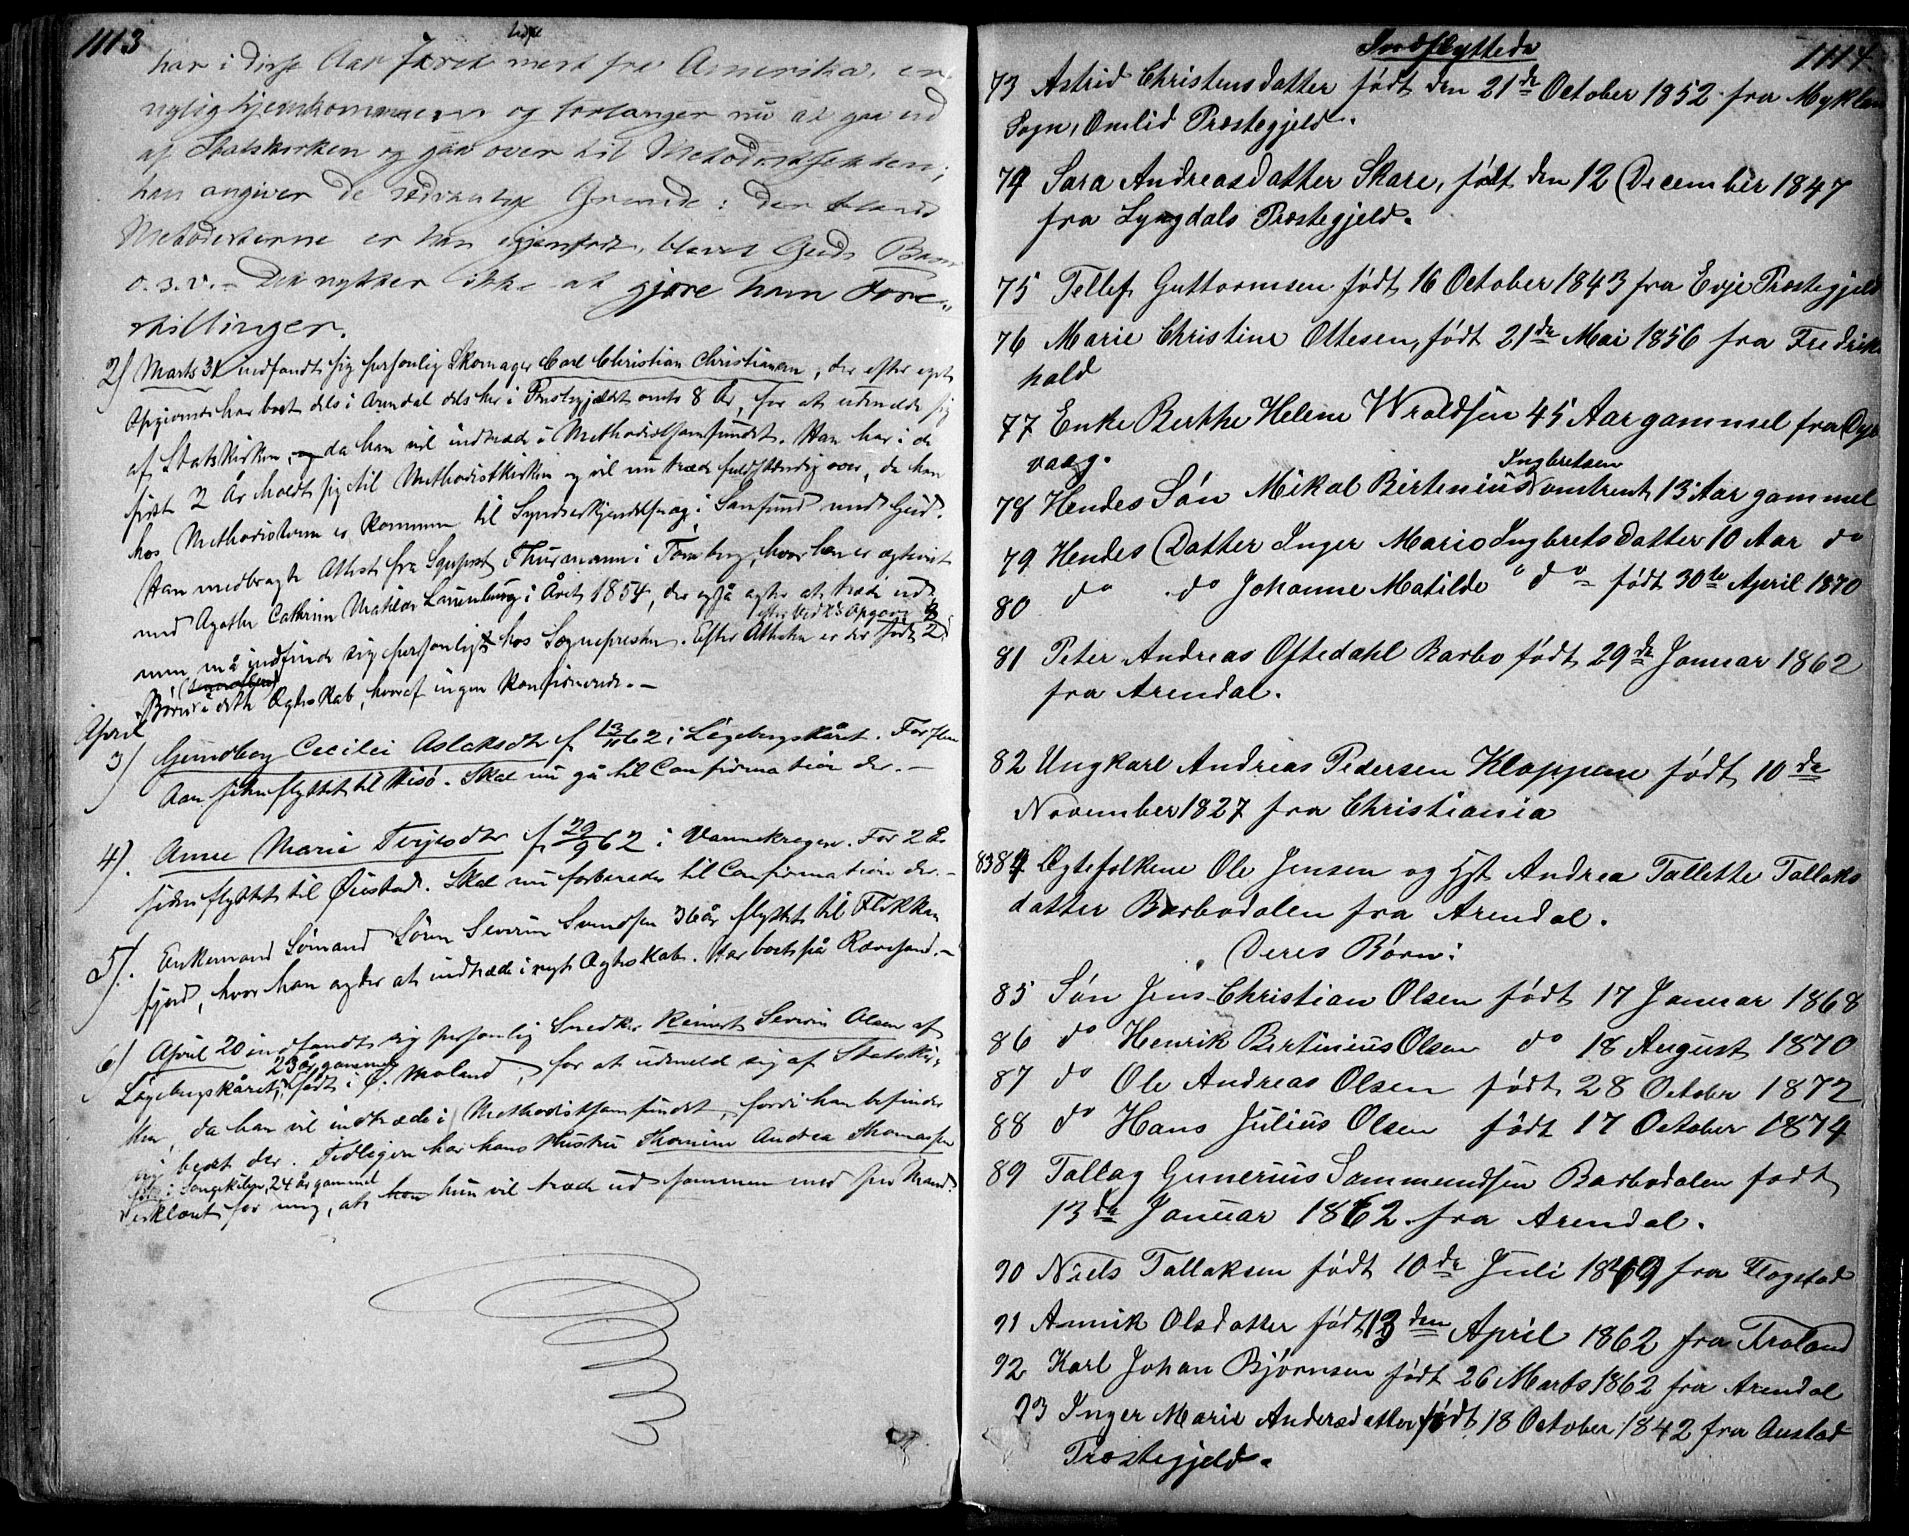 1113
har i disse Aar faret mest fra Amerika, er
nylig hjemkommen og forlanger nu at gaa ud
af Statskirken og gaa over til Methodistsekten;
han angiver de sædvanlige Grunde: Der blandt
Methodisterne er han igjenfødt, blevet Guds Barn
o.s.v. – Det nytter ikke at gjøre ham Fore-
stillinger.
2) Marts 31 indfandt sig personlig Skomager Carl Christian Christiansen, der efter eget
Opgivende har boet dels i Arendal dels her i Præstegjældet omtr. 8 År, for at udmelde sig
af Statskirken, da han vil indtræde i Methodistsamfundet. Han har i de
sidste 2 År holdt sig til Methodistkirken og vil nu træde fuldstændig over, da han
hos Methodisterne er kommen til Syndserkjendelse og i Samfund med Gud.
Han medbragte Attest fra Sgnprst Thurmann i Tønsberg, hvor han er ægteviet
med Agathe Cathrine Matilde Lauenburg i Året 1854, der også agter at træde ud
men må indfinde sig personligt hos Sognepresten. Efter Attesten er der født 2
efter Ved Ks Opgave
Børn i dette Ægteskab, hvoraf ingen konfirmerede. –
April
3) Gundborg Cecilie Aslaksdtr f 13/11 62 i Lågebergskåret. For flere
Aar siden flyttet til Hisø. Skal nu gå til Confirmation der. –
4). Anne Marie Terjesdtr f 29/9 62 i Vannekragen. For 2 År
siden flyttet til Øiestad. Skal nu forberedes til Confirmation der. –
5). Enkemand Sømand Søren Severin Svendsen 36 år flyttet til Flekke
fjord, hvor han agter at indtræde i nyt Ægteskab. Har boet på Rævesand. –
6) April 20 indfandt sig personlig Snedker Reinert Severin Olsen af
23 år gammel
Lågebergskåret, født i Ø. Moland, for at udmelde sig af Statskir-
ken, da han vil indtræde i Methodistsamfundet, fordi han befinder
sig bedst der. Tidligere har hans Hustru Thomine Andrea Thomassen
født i Songekilen, 24 år gammel
erklæret for mig, at hun vil træde ud sammen med sin Mand.
Indflyttede
1114
73 Astrid Christensdatter født den 21de October 1852 fra Myklan
Sogn, Omlid Præstegjeld.
74 Sara Andreasdatter Skare, født den 12 December 1847
fra Lyngdals Præstegjeld.
75 Tellef Guttormsen født 16 October 1843 fra Evje Præstegjeld
76 Marie Christine Ottesen, født 21de Mai 1856 fra Fredriks
hald
77 Enke Berthe Helene Wroldsen 45 Aar gammel fra Dyb
vaag.
Ingbretsen
78 Hendes Søn Mikal Birtenius Nomstrent 13 Aar gammel
79 Hendes Datter Inger Marie Ingbretsdatter 10 Aar do
80 do do Johanne Matilde " do født 30te April 1870
81 Peter Andreas Oftedahl Barbo født 29de Januar 1862
fra Arendal.
82 Ungkarl Andreas Pedersen Kloppene født 10de
November 1827 fra Christiania
83 84 Ægtefolkene Ole Jensen og Hst Andrea Tallette Tallaks
datter Barbodalen fra Arendal.
Deres Børn:
85 Søn Jens Christian Olsen født 17 Januar 1868
86 do Henrik Bertinius Olsen do 18 August 1870
87 do Ole Andreas Olsen født 28 October 1872
88 do Hans Julius Olsen født 17 October 1874
89 Tallag Gunerius Sammundsen Barbodalen født
13de Januar 1862 fra Arendal.
90 Niels Tallaksen født 10de Juli 1849 fra Flogstad
91 Annik Olsdatter født 13den April 1862 fra Froland
92 Karl Johan Bjørnsen født 26 Marts 1862 fra Arendal
93 Inger Marie Andersdatter født 18 October 1842 fra Austad
Præstegjeld.